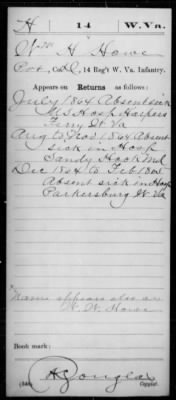 H 14 W. Va.
Wm H Howe
Pvt., Co. D, 14 Reg't W. Va. Infantry.
Appears on Returns as follows:
July 1864 Absent sick
U S Hosp Harpers
Ferry W Va
Aug to Nov 1864 Absent
sick in Hosp
Sandy Hook Md
Dec 1864 to Feb 1865
Absent sick in Hosp
Parkersburg W. Va
Name appears also as
W. W. Howe
Book mark:
Copyist.